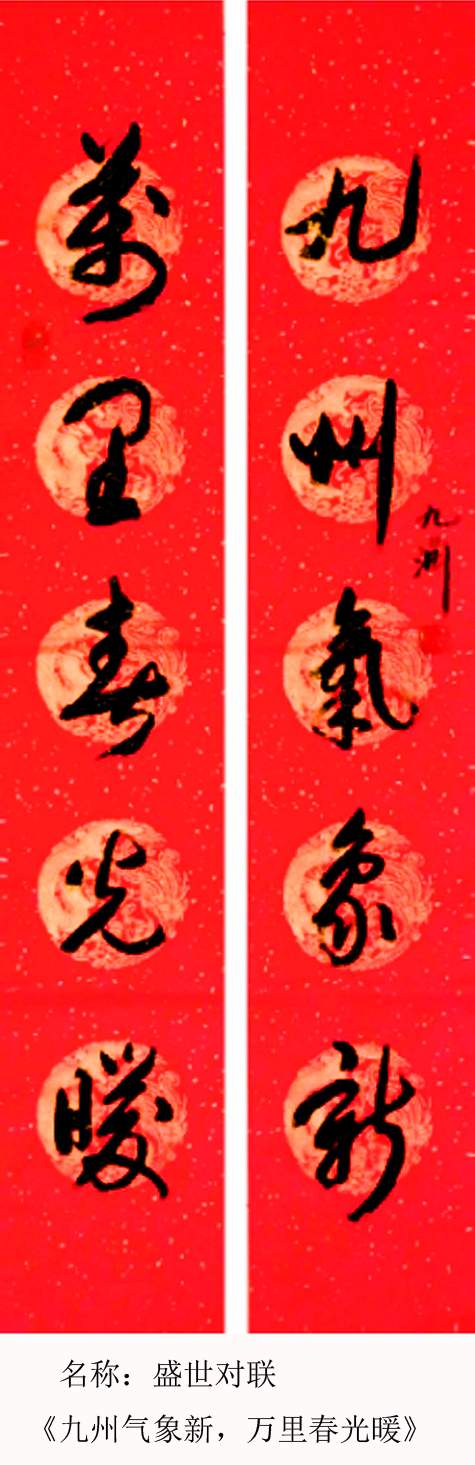 九州氣象新
九洲
萬里春光暖
名称：盛世对联
《九州气象新，万里春光暖》